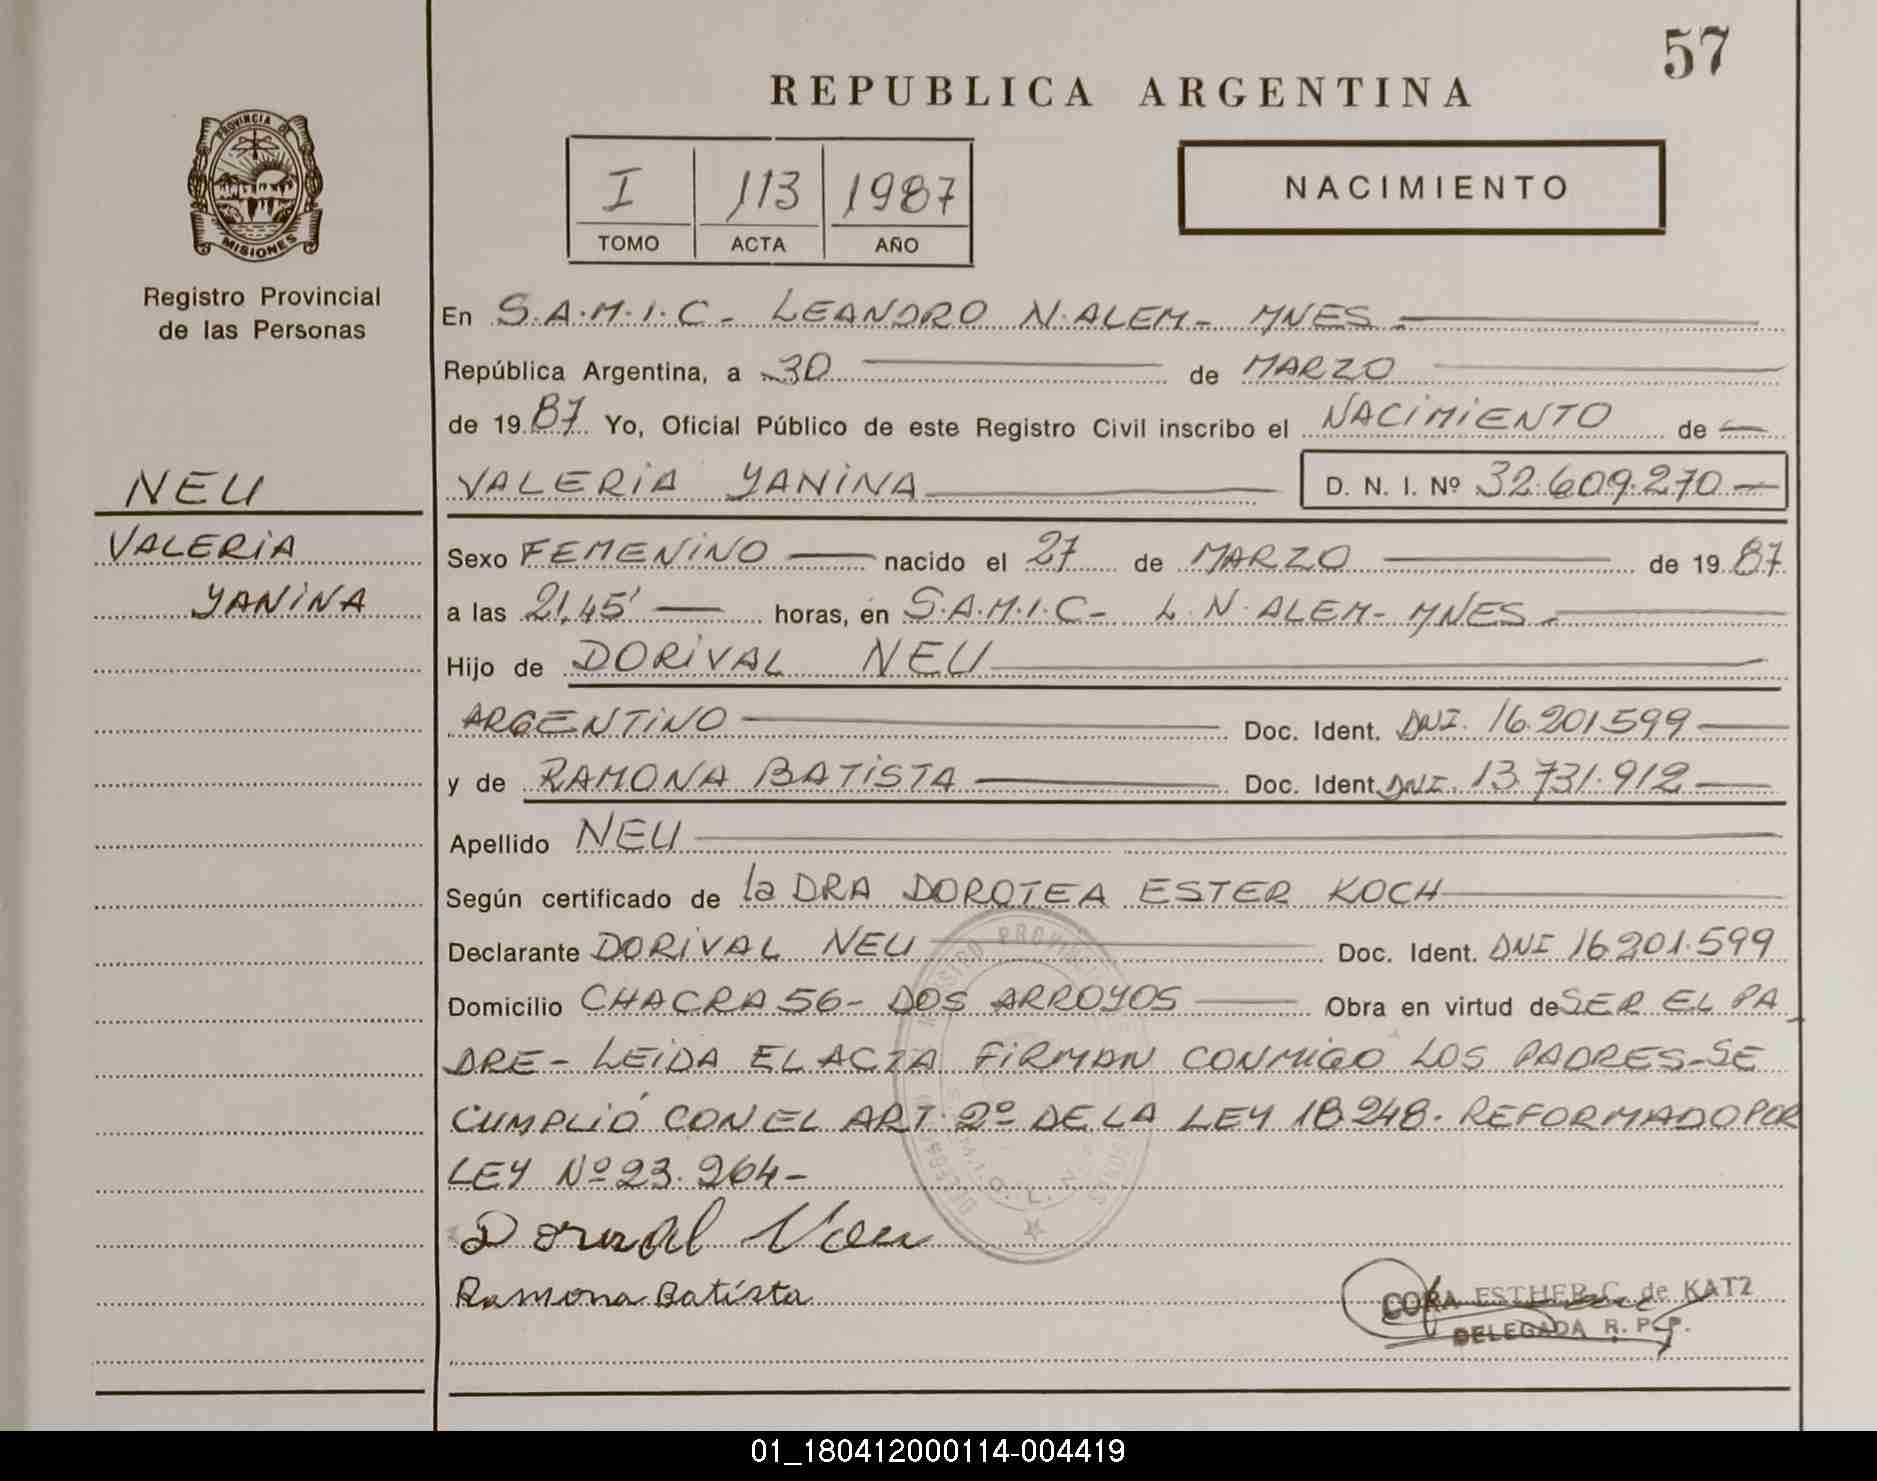 57
REPUBLICA ARGENTINA
PROVINCIA DE
MISIONES
Registro Provincial
de las Personas
I 113 1987
TOMO ACTA AÑO
NACIMIENTO
En S.A.M.I.C - LEANDRO N. ALEM - MNES -
República Argentina, a 30 de MARZO
de 1987 Yo, Oficial Público de este Registro Civil inscribo el NACIMIENTO de
NEU
VALERIA
YANINA
VALERIA YANINA D. N. I. Nº 32.609.270
Sexo FEMENINO nacido el 27 de MARZO de 1987
a las 21,45' horas, en S.A.M.I.C - L. N. ALEM - MNES -
Hijo de DORIVAL NEU
ARGENTINO Doc. Ident. DNI. 16.201.599
y de RAMONA BATISTA Doc. Ident. DNI. 13.731.912
Apellido NEU
Según certificado de la DRA DOROTEA ESTER KOCH
Declarante DORIVAL NEU Doc. Ident. DNI 16.201.599
Domicilio CHACRA 56 - DOS ARROYOS Obra en virtud de SER EL PA
DRE - LEIDA EL ACTA FIRMAN CONMIGO LOS PADRES - SE
CUMPLIÓ CON EL ART. 2º DE LA LEY 18.248. REFORMADO POR
LEY Nº 23.264 -
Dorival Neu
Ramona Batista
CORA ESTHER C. de KATZ
DELEGADA R. P. P.
01_180412000114-004419